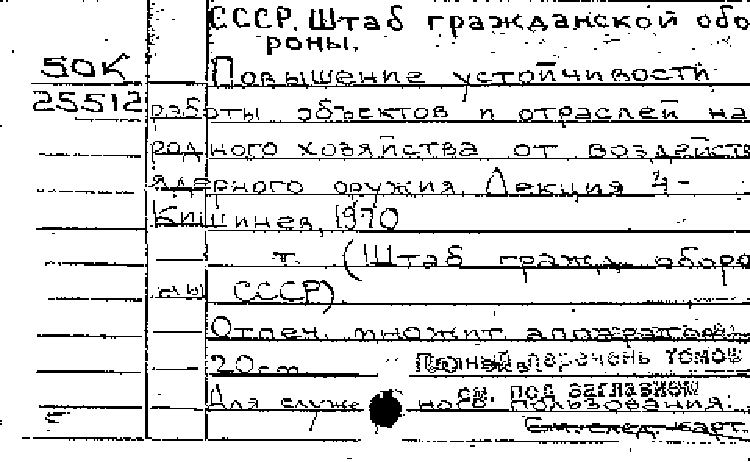 СССР. Штаб гражданской обо
роны.
50К
Повышение устойчивости
25512
работы объектов и отраслей на
родного хозяйства от воздейств
ядерного оружия. Лекция 4-
Кишинев, 1970
т. (Штаб гражд. оборо
ны СССР)
Отпеч. множит. аппаратом
20см
Полный перечень томов
см. под заглавием
Для служебного пользования.
См. след. карт.